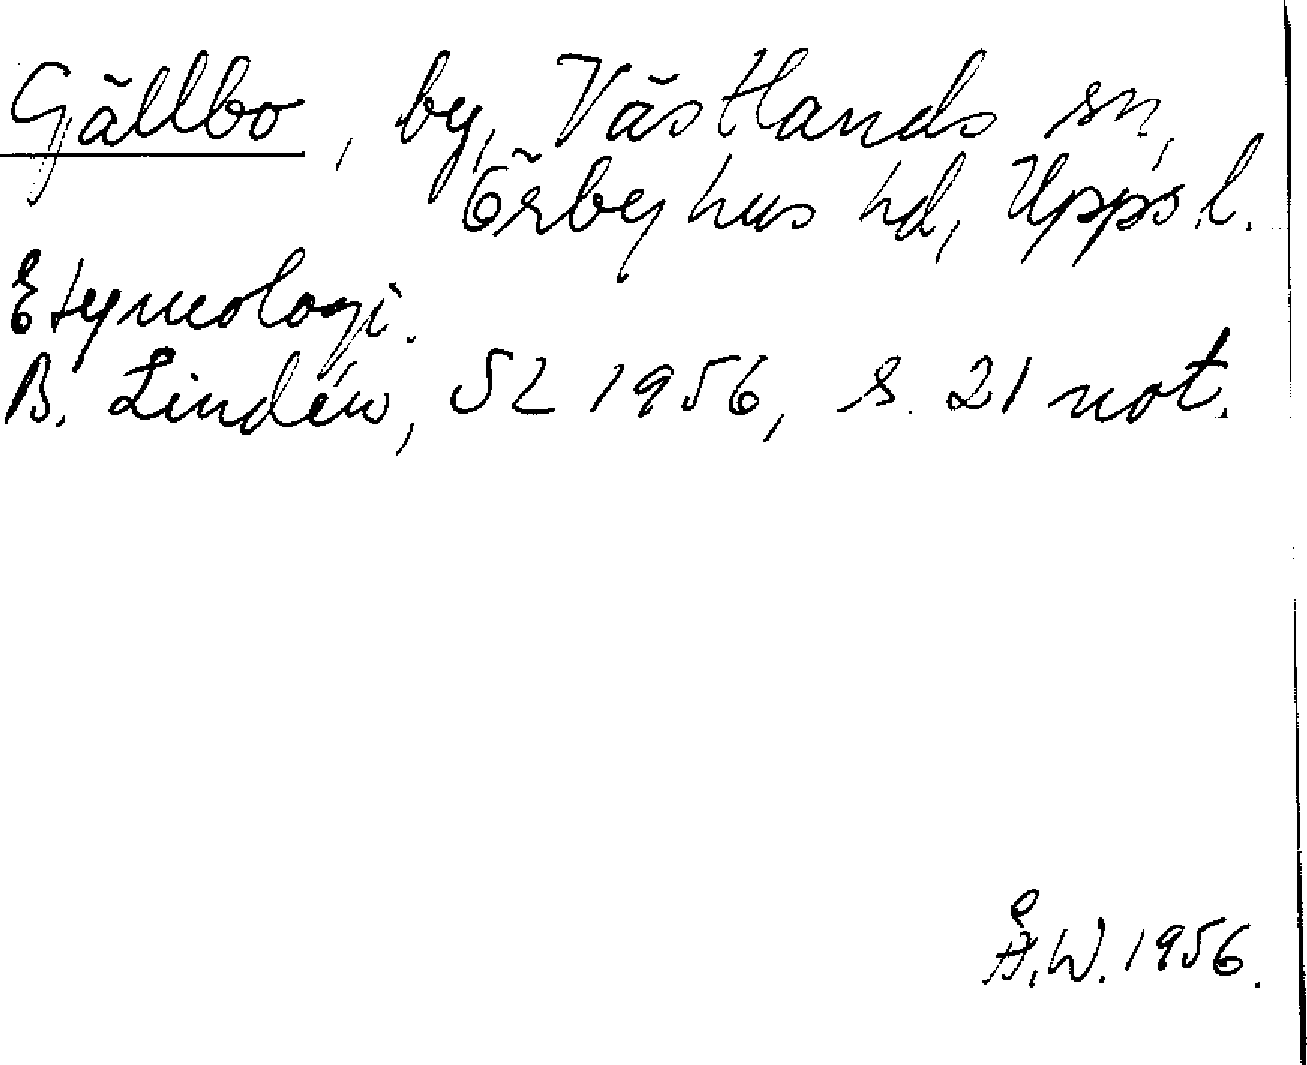 Gällbo, by, Västlands sn,
Örbyhus hd, Upps.l.
Etymologi.
B. Lindén, SL 1956, s. 21 not.
Å.W. 1956.